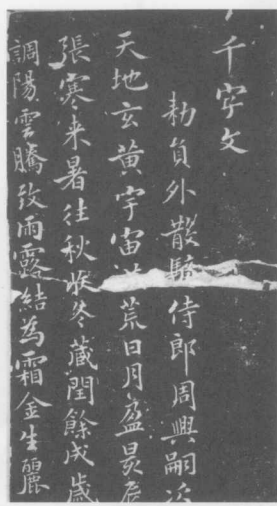 千字文
勅員外散騎侍郎周興嗣次
天地玄黄宇宙荒日月盈昃辰
張寒来暑往秋收冬藏閏餘成歲
調陽雲騰致雨露結為霜金生麗